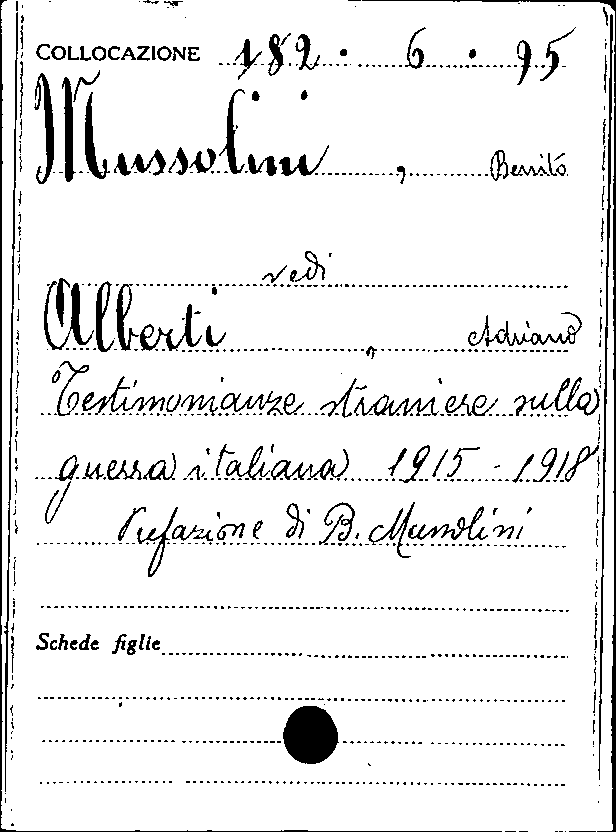 COLLOCAZIONE 182 . 6 . 95
Mussolini , Benito
vedi
Alberti , Adriano
Testimonianze straniere sulla
guerra italiana 1915 - 1918
Prefazione di B. Mussolini
Schede figlie